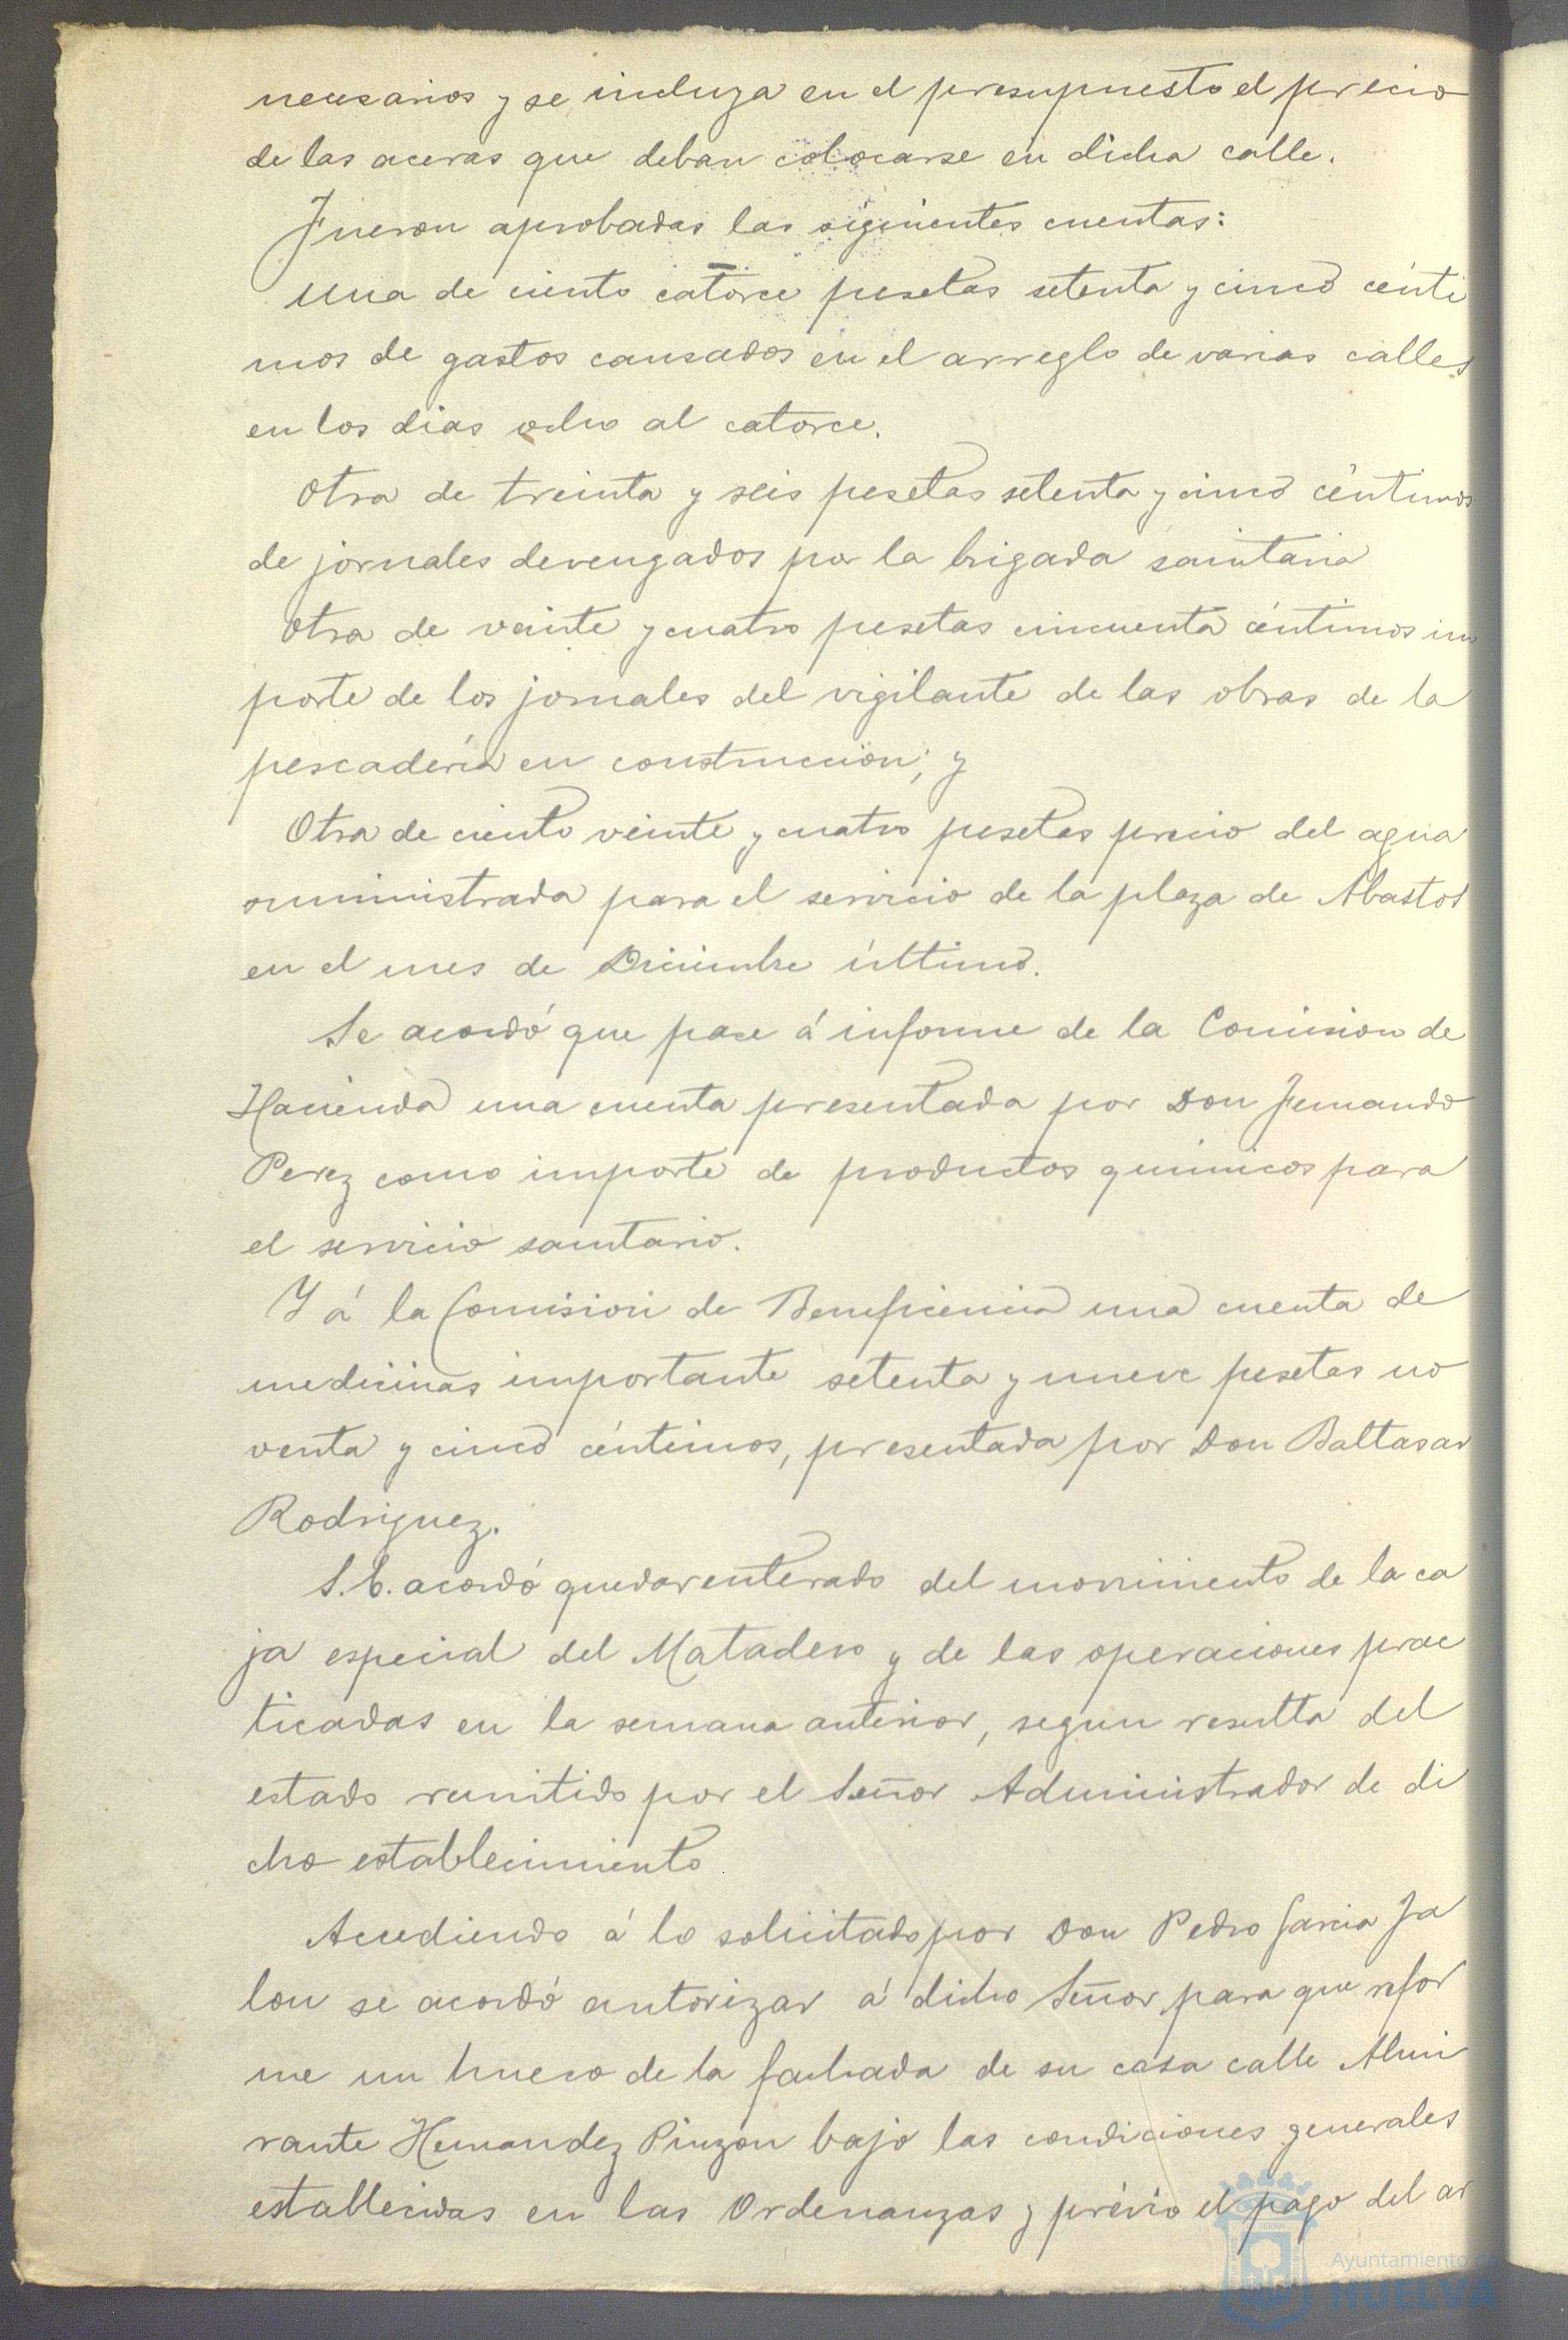 necesarios y se incluya en el presupuesto el precio
de las aceras que deban colocarse en dicha calle.
Fueron aprobadas las siguientes cuentas:
Una de ciento catorce pesetas setenta y cinco cénti
mos de gastos causados en el arreglo de varias calles
en los dias ocho al catorce.
Otra de treinta y seis pesetas setenta y cinco céntimos
de jornales devengados por la brigada sanitaria
Otra de veinte y cuatro pesetas cincuenta céntimos im
porte de los jornales del vigilante de las obras de la
pescadería en construccion; y
Otra de ciento veinte y cuatro pesetas precio del agua
suministrada para el servicio de la plaza de Abastos
en el mes de Diciembre último.
Se acordó que pase á informe de la Comision de
Hacienda una cuenta presentada por Don Fernando
Perez como importe de productos quimicos para
el servicio sanitario.
Y á la Comision de Beneficencia una cuenta de
medicinas importante setenta y nueve pesetas no
venta y cinco céntimos, presentada por Don Baltasar
Rodriguez.
S.E. acordó quedar enterado del movimiento de la ca
ja especial del Matadero y de las operaciones prac
ticadas en la semana anterior, segun resulta del
estado remitido por el Señor Administrador de di
cho establecimiento
Accediendo á lo solicitado por Don Pedro Garcia Ja
lon se acordó autorizar á dicho Señor para que refor
me un hueco de la fachada de su casa calle Almi
rante Hernandez Pinzon bajo las condiciones generales
establecidas en las Ordenanzas y prévio el pago del ar
Ayuntamiento de
HUELVA